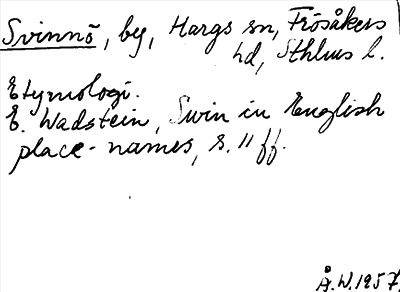 Svinnö, by, Hargs sn, Frösåkers
hd, Sthlms l.
Etymologi.
E. Wadstein, Swin in English
place-names, s. 11 ff.
Å.W. 1957.